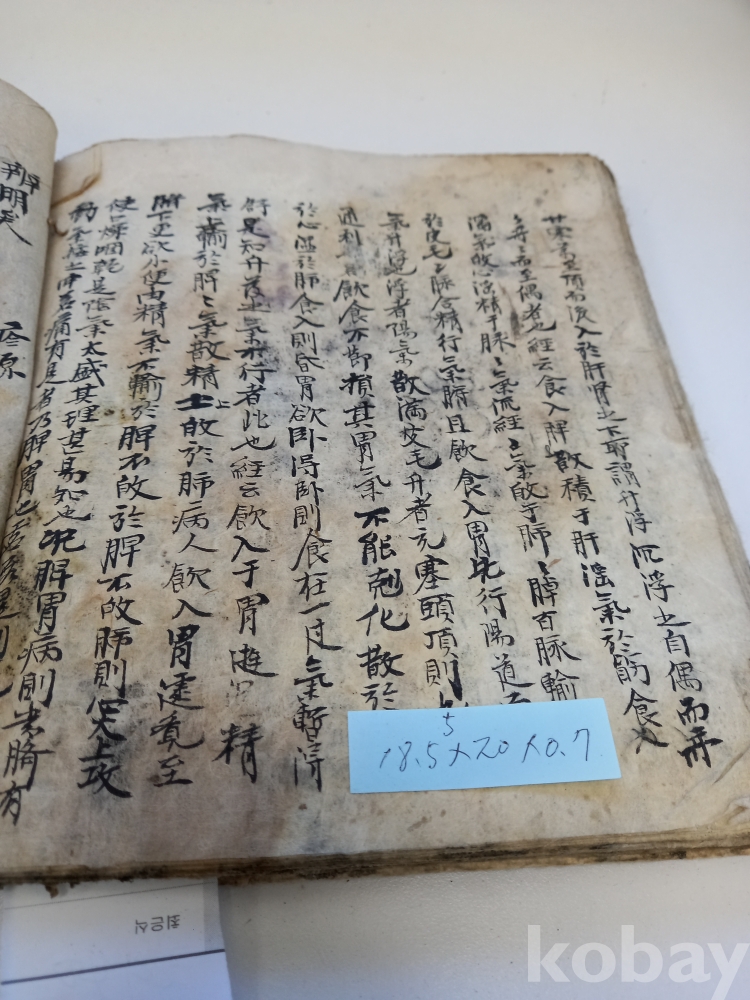 而復入於肝腎之下所謂升浮沉浮之自偶而再
再而至偶者也經云食入脾散積于肝淫氣於筋食入
濁氣故心淫精于脉〻氣流經〻氣故于肺〻脾百脉輸
於皮毛〻脉合精行氣肺且飲食入胃先行陽道而
氣升浮〻浮者陽氣散滿皮毛升者充塞頭頂則
通利 飲食不節損其胃氣不能剋化散於
於心溢於肺食入則昏胃欲卧得卧則食在一边氣暫得
舒是知升發之氣不行者此也經云飲入于胃遊溢精
氣輸於脾〻氣散精上故於肺病人飲入胃遽覚至
臍下更欲小便由精氣不輸於脾不故於脾不故肺則心火上攻
使口燥咽乾是陰氣太盛其理甚易知也况脾胃病則當臍有
動氣按之牢若痛有是者乃脾胃也
辨明
18.5×20×0.7
5
최은식
kobay